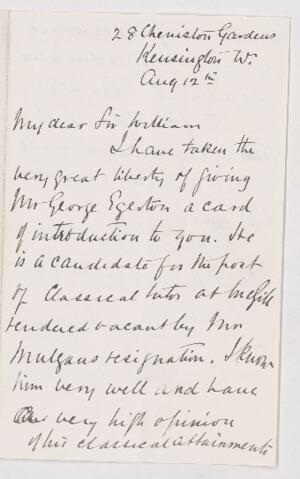 28 Cheniston Gardens
Kensington W.
Aug 12th
My dear Sir William
I have taken the
very great liberty of giving
Mr George Egerton a card
of introduction to you. He
is a candidate for the post
of Classical tutor at McGill
rendered vacant by Mr
Mulgans resignation. I know
him very well and have
a very high opinion
of his classical attainments